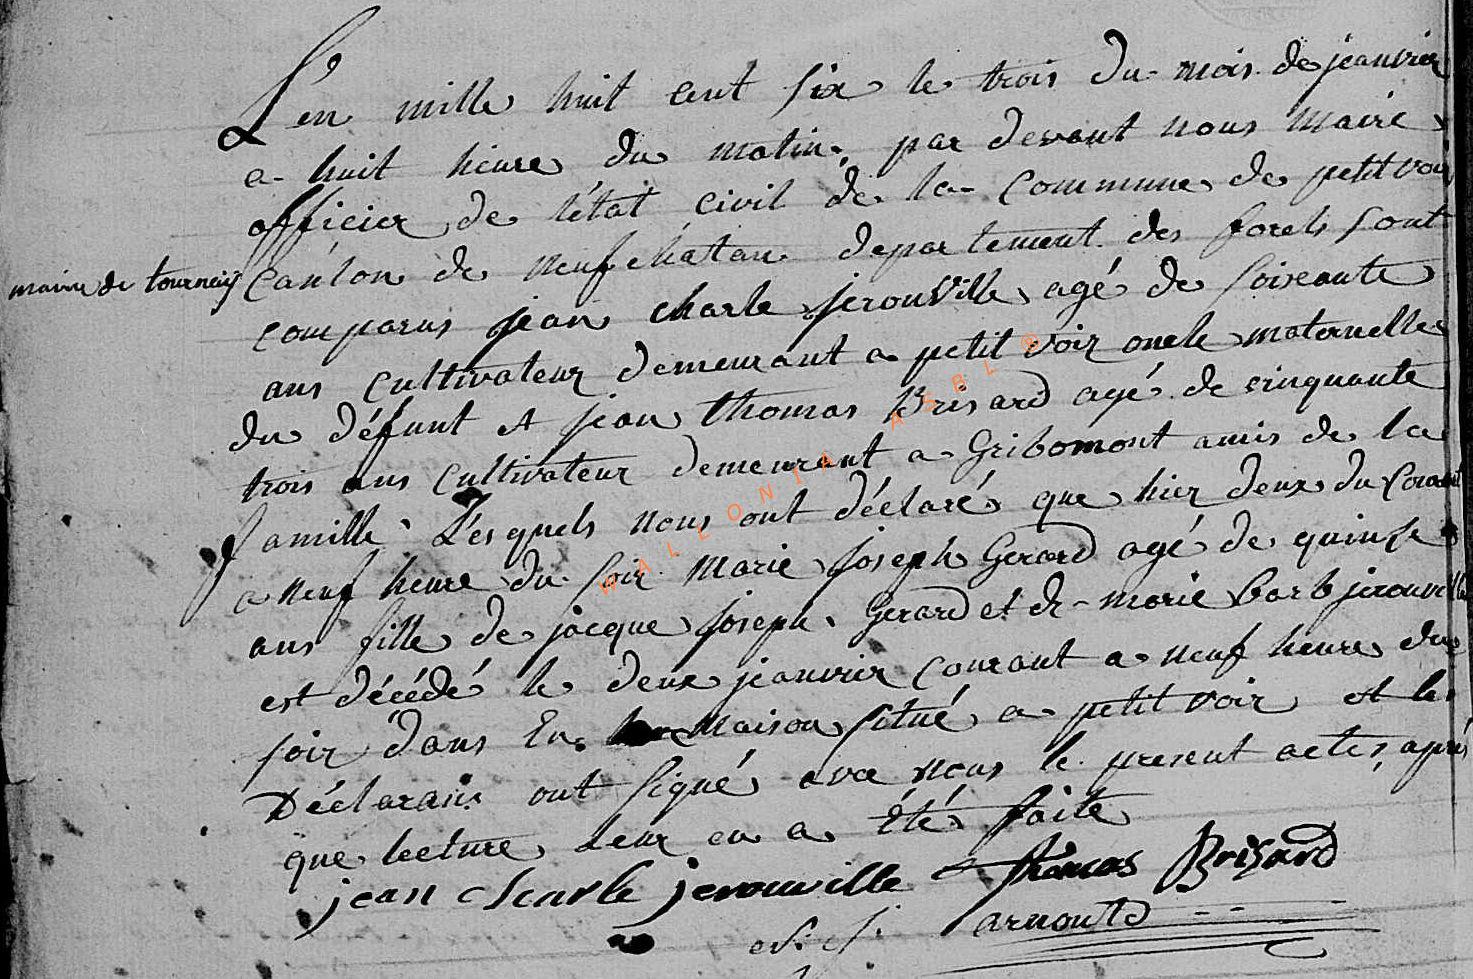 L'en mille huit cent six le trois du mois de jeanvier
a huit heure du matin, par devant nous maire
officier de l'état civil de la commune de petit voir
mairie de tournay Canton de neufchatau departement des forets sont
comparus jean charle jerouville agé de soixante
ans cultivateur demeurant a petit voir oncle maternelle
du défunt et jean thomas Brisard agé de cinquante
trois ans cultivateur demeurant a Gribomont amis de la
famille Lesquels nous ont déclaré que hier deux du courant
a neuf heure du soir Marie joseph Gerard agé de quinse
ans fille de jacque joseph Gerard et de marie barb jerouville
est décédé le deux jeanvier courant a neuf heure du
soir dans En maison situé a petit voir et les
Déclarans ont signé avec nous le present actes, aprés
que lecture leur en a été faite
jean charle jerouville thomas Brisard
arnould
WALLONIA ASBL